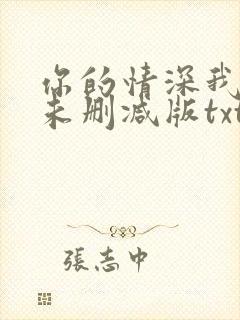 你的情深我
未删减版txt
張志中